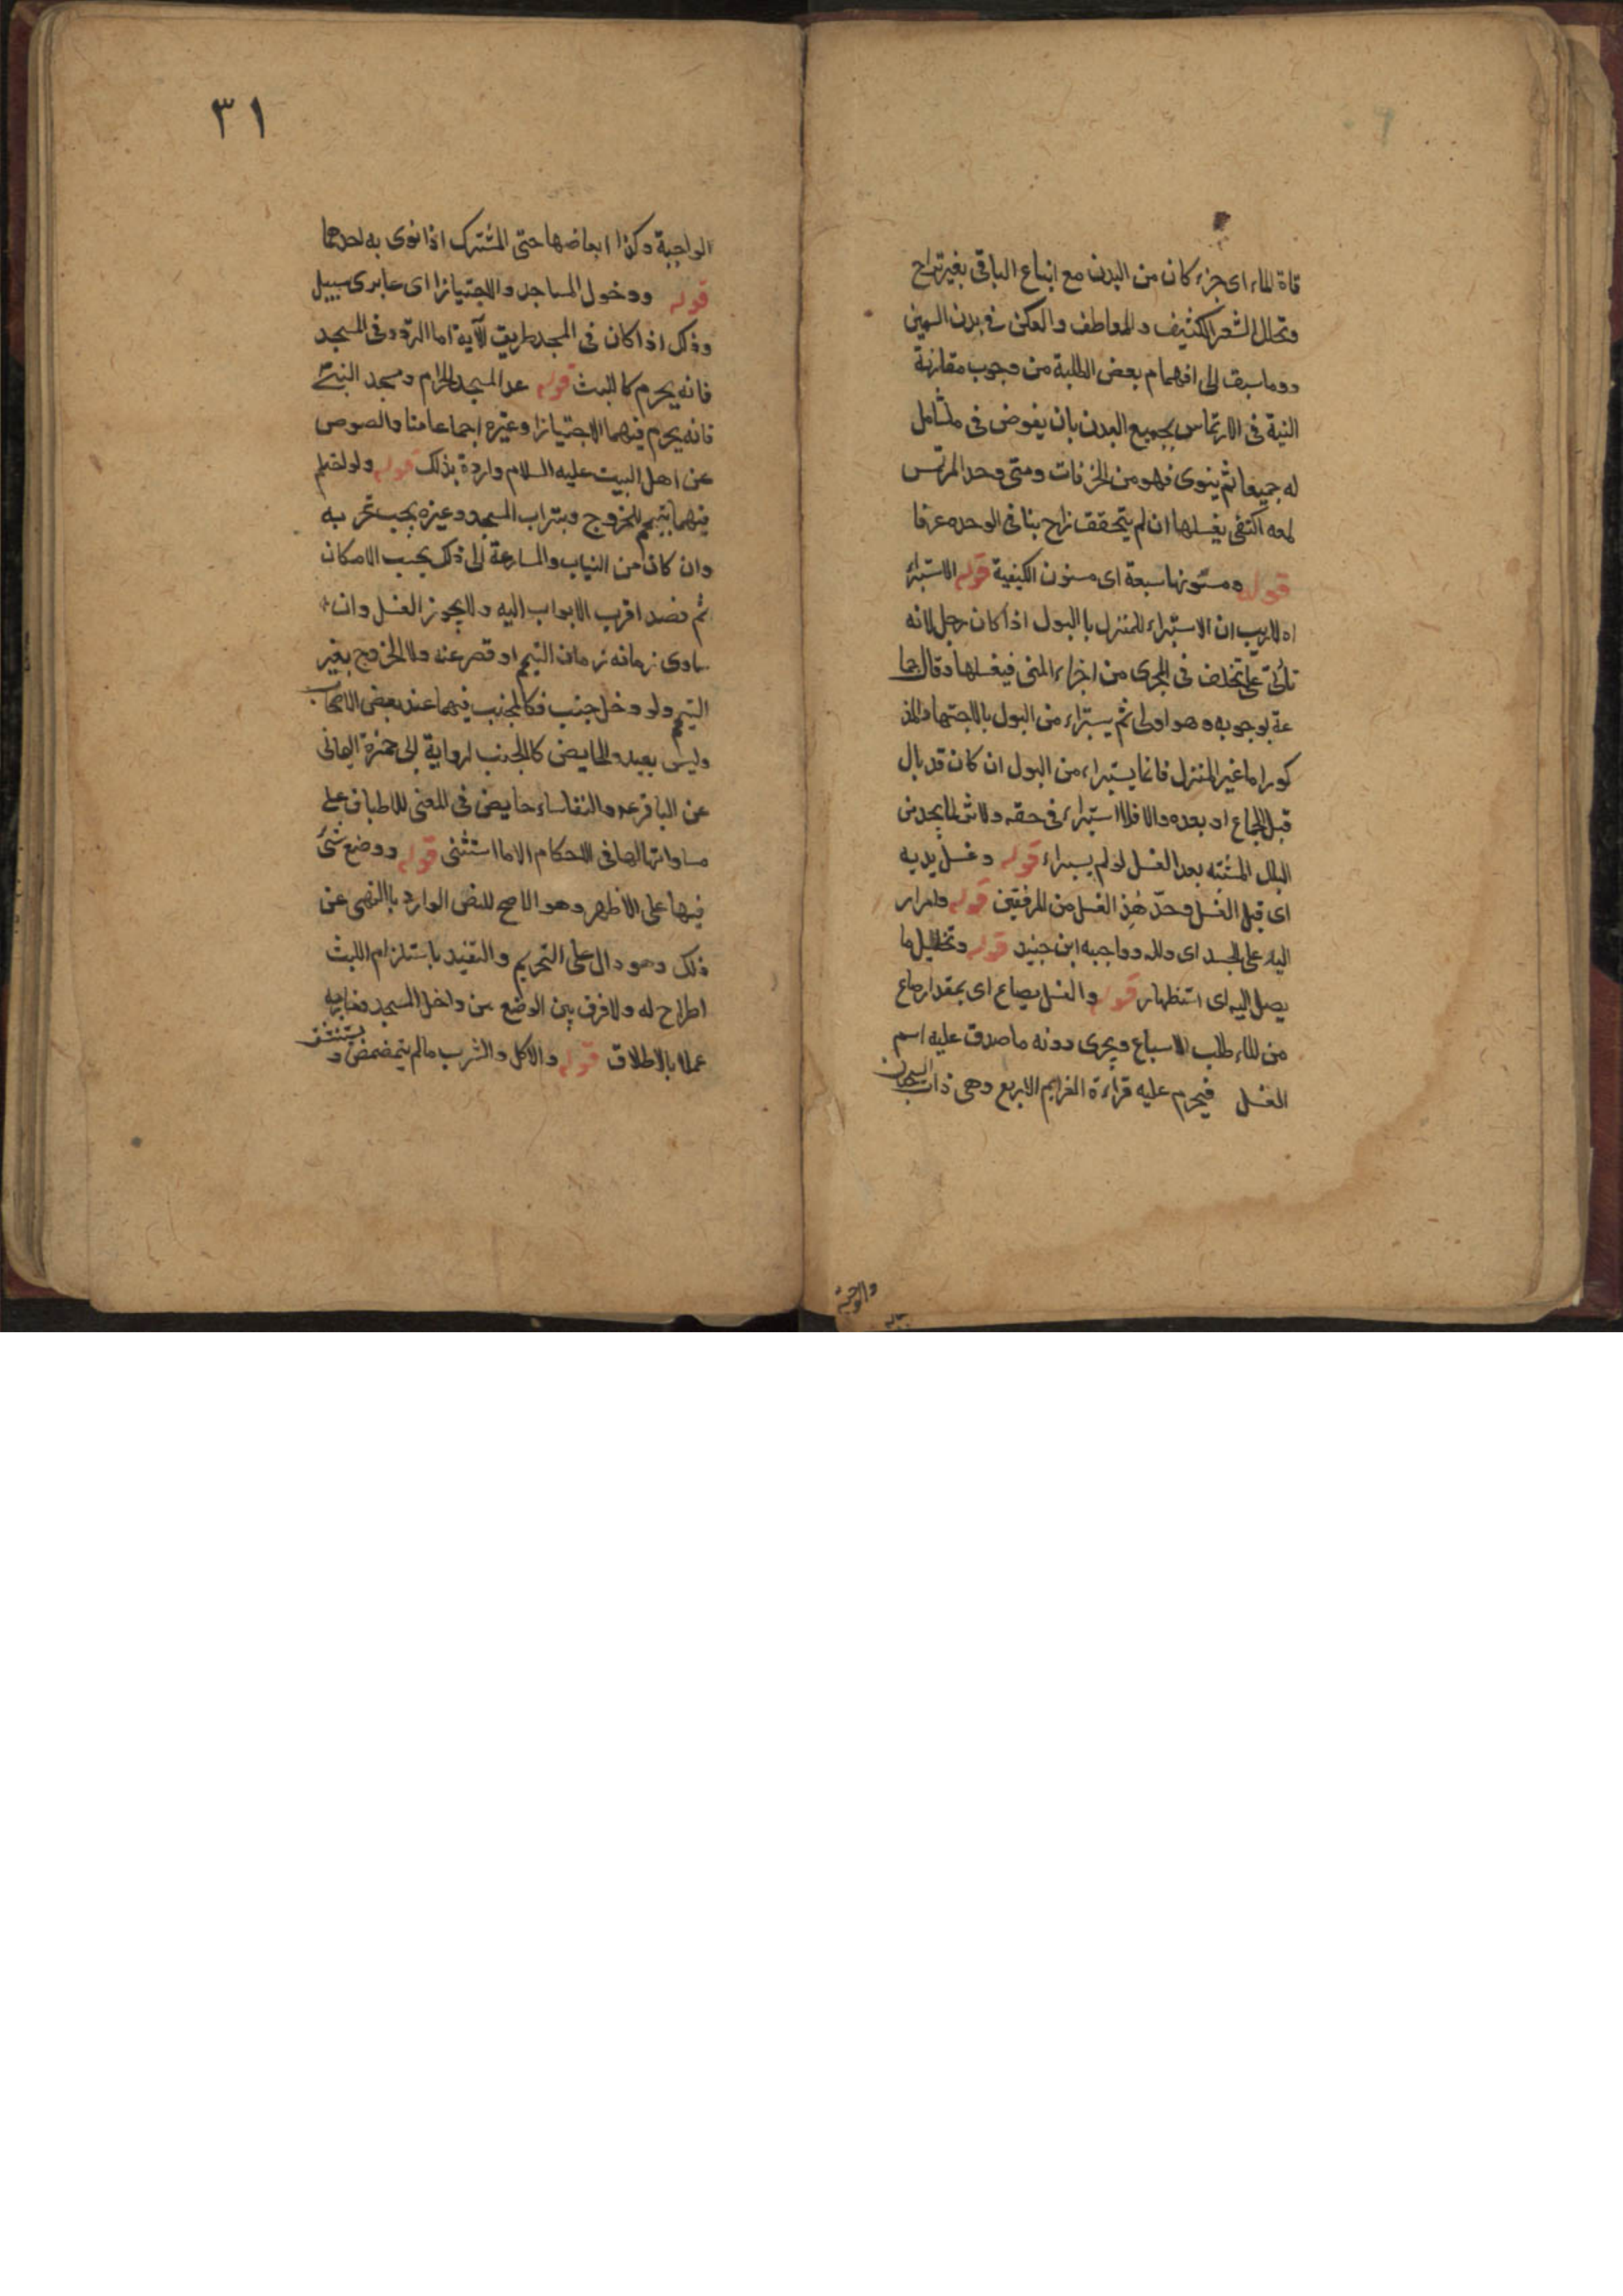 قاة الماء اى جزء كان من البدن مع اتباع الباقى بغير تراخ
وتخلل الشعر الكثيف والمعاطف والعكن فى بدن السمين
وما سبق الى افهام بعض الطلبة من وجوب مقارنة
النية فى الارتماس بجميع البدن بان يفوض فى ماء شامل
له جميعا ثم ينوى فهو من الخرفات ومتى وجد المرتمس
لمعه اكتفى بغسلها ان لم يتحقق تراخ ينافى الوحده عرفا
قوله ومسنونها سبعة اى مسنون الكيفية قوله الاستبراء
اه لاريب ان الاستبراء للمنزل بالبول اذا كان رجل لانه
تأتى على تخلف فى المجرى من اجزاء المنى فيغسلها وقال جما
عة بوجوبه وهو اولى ثم يستبراء من البول بالاجتهاد المذ
كور اما غير المنزل فانما يستبراء من البول ان كان قد بال
قبل الجماع او بعده والا فلا استبراء فى حقه ولا شى لما يجد من
البلل المشتبه بعد الغسل لو لم يسبراء قوله وغسل يديه
اى قبل الغسل وحد هذ الغسل من المرفقين قوله وامرار
اليد على الجسد اى دلله وواجبه ابن جنيد قوله وتخليل ما
يصل اليه اى استظهار قوله والغسل بصاع اى بمقدار صاع
من الماء طلب الاسباغ ويجرى دونه ما صدق عليه اسم
الغسل فيحرم عليه قراءة العزايم الاربع وهى ذات السجدات
والواجبة
٣١
الواجبة وكذا ابعاضها حتى المشترك اذا نوى به احدهما
قوله ودخول المساجد والا اجتيازا اى عابرى سبيل
وذلك اذا كان فى المجد طريق للآية اما التردد فى المسجد
فانه يحرم كاللبث قوله عدا المسجد الحرام ومسجد النبى
فانه يحرم فيهما الاجتيازا وغيره اجماعا منا والنصوص
عن اهل البيت عليه السلام واردة بذلك قوله ولو احتلم
فيهما تيمم للخروج وبتراب المسجد وغيره يجب تحر به
وان كان من الثياب والمسارعة الى ذلك بحسب الامكان
ثم قصد اقرب الابواب اليه ولا يجوز الغسل وان
ساوى زمانه زمان التيمم او قصر عنه ولا الخروج بغير
التيمم ولو دخل جنب فكالمجنب فيهما عند بعض الاصحاب
وليس ببعيد والحايض كالمجنب لرواية ابى حمزة اليمانى
عن الباقر ع والنفاساء حايض فى المعنى للاطباق على
مساواتها لها فى الاحكام الا ما استثنى قوله ووضع شئ
فيها على الاظهر وهو الاصح للنص الوارد بالنهى عن
ذلك وهو دال على التحريم والتقيد باستلزام اللبث
اطراح له ولا فرق بين الوضع من داخل المسجد وخارجه
عملا بالاطلاق قوله والاكل والشرب مالم يتمضمض و يستنشق